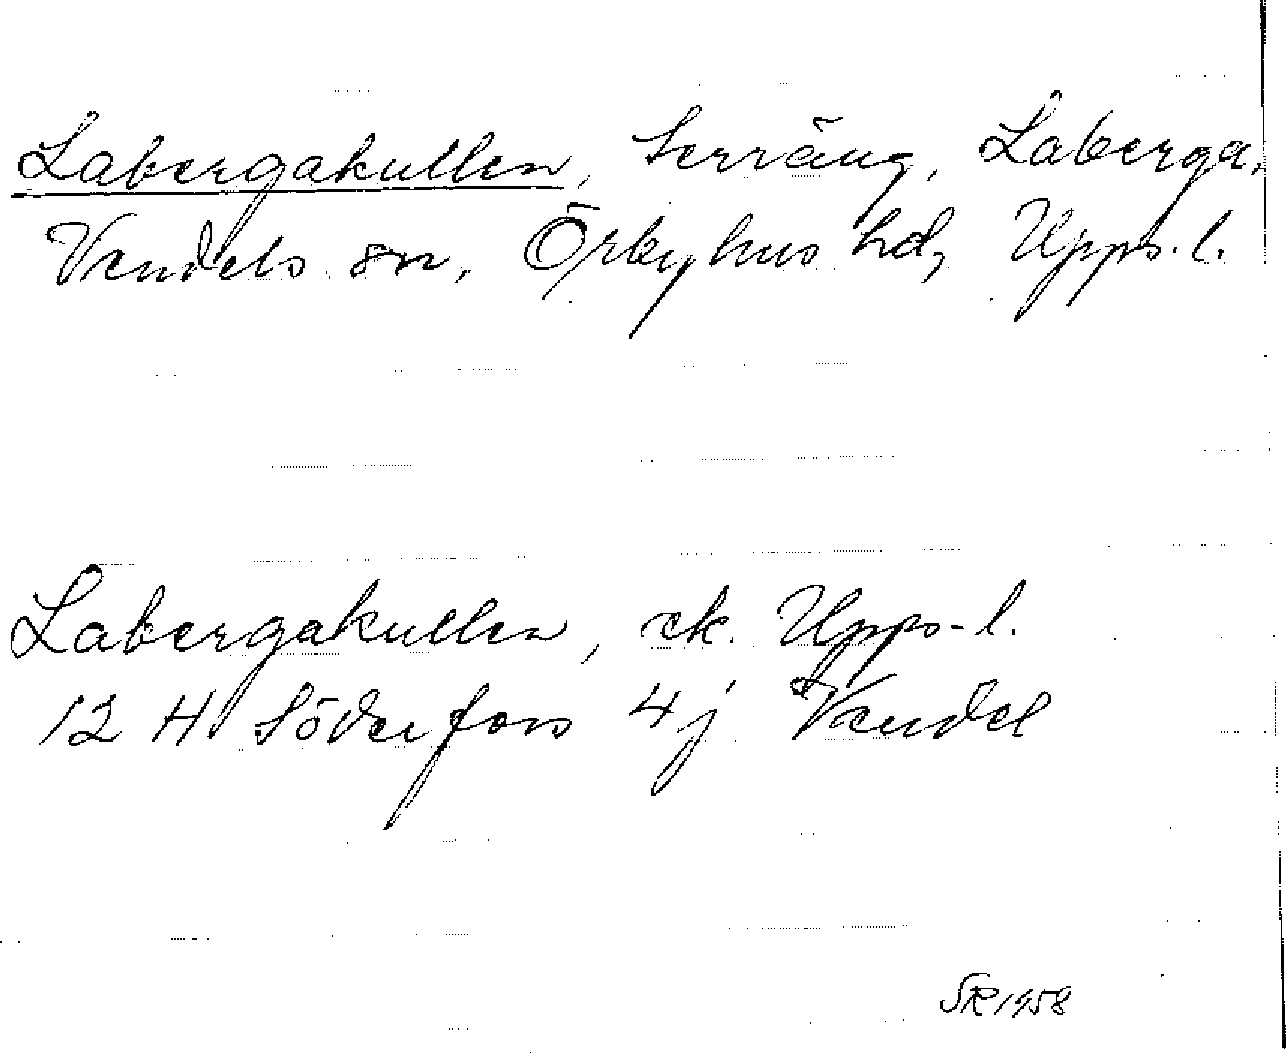 Labergakullen, terräng, Laberga,
Vendels sn, Örbyhus hd, Upps. l.
Labergakullen, ek. Upps-l.
12 H Söderfors 4j Vendel
SR 1958